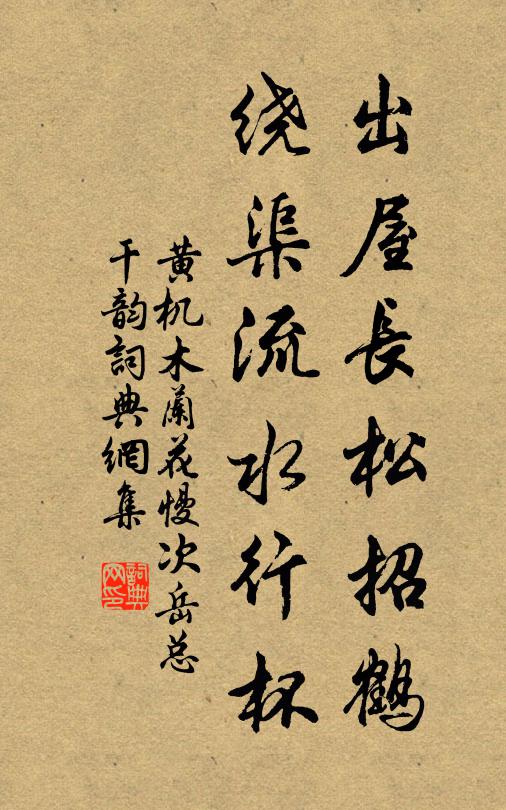 出屋長松招鶴
绕渠流水行杯
黄机木蘭花慢次岳总
干韵詞典網集
詞典网印